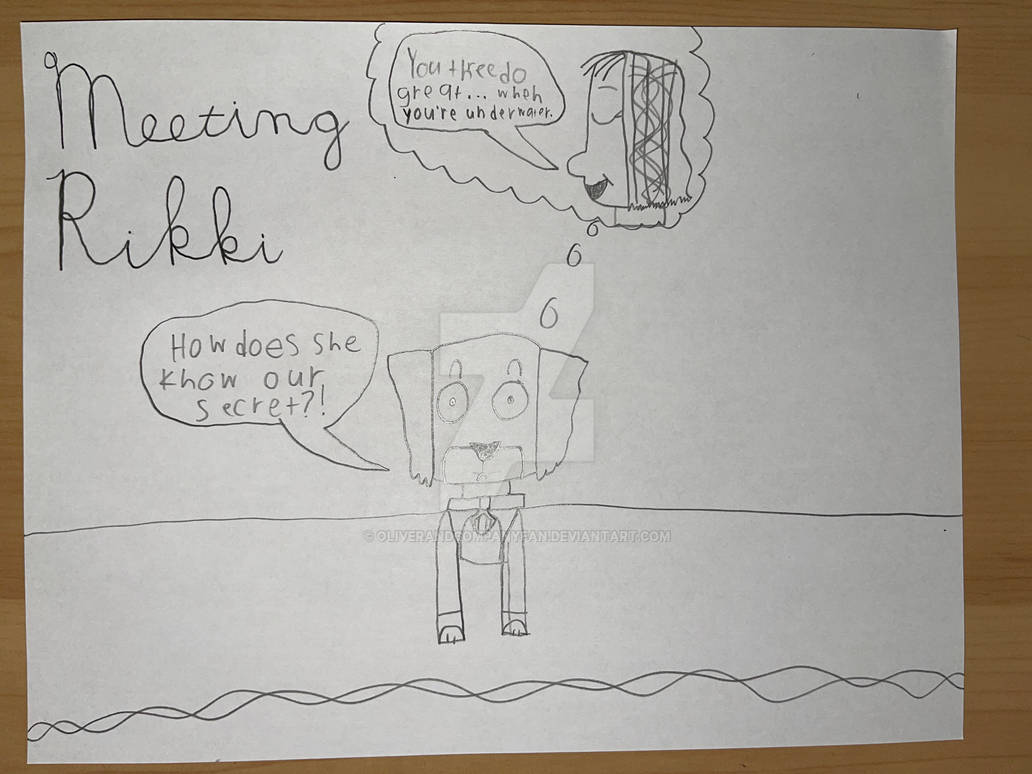 Meeting
Rikki
You three do
great... when
you're underwater.
How does she
know our
secret?!
© OLIVERANDCOMPANYFAN.DEVIANTART.COM